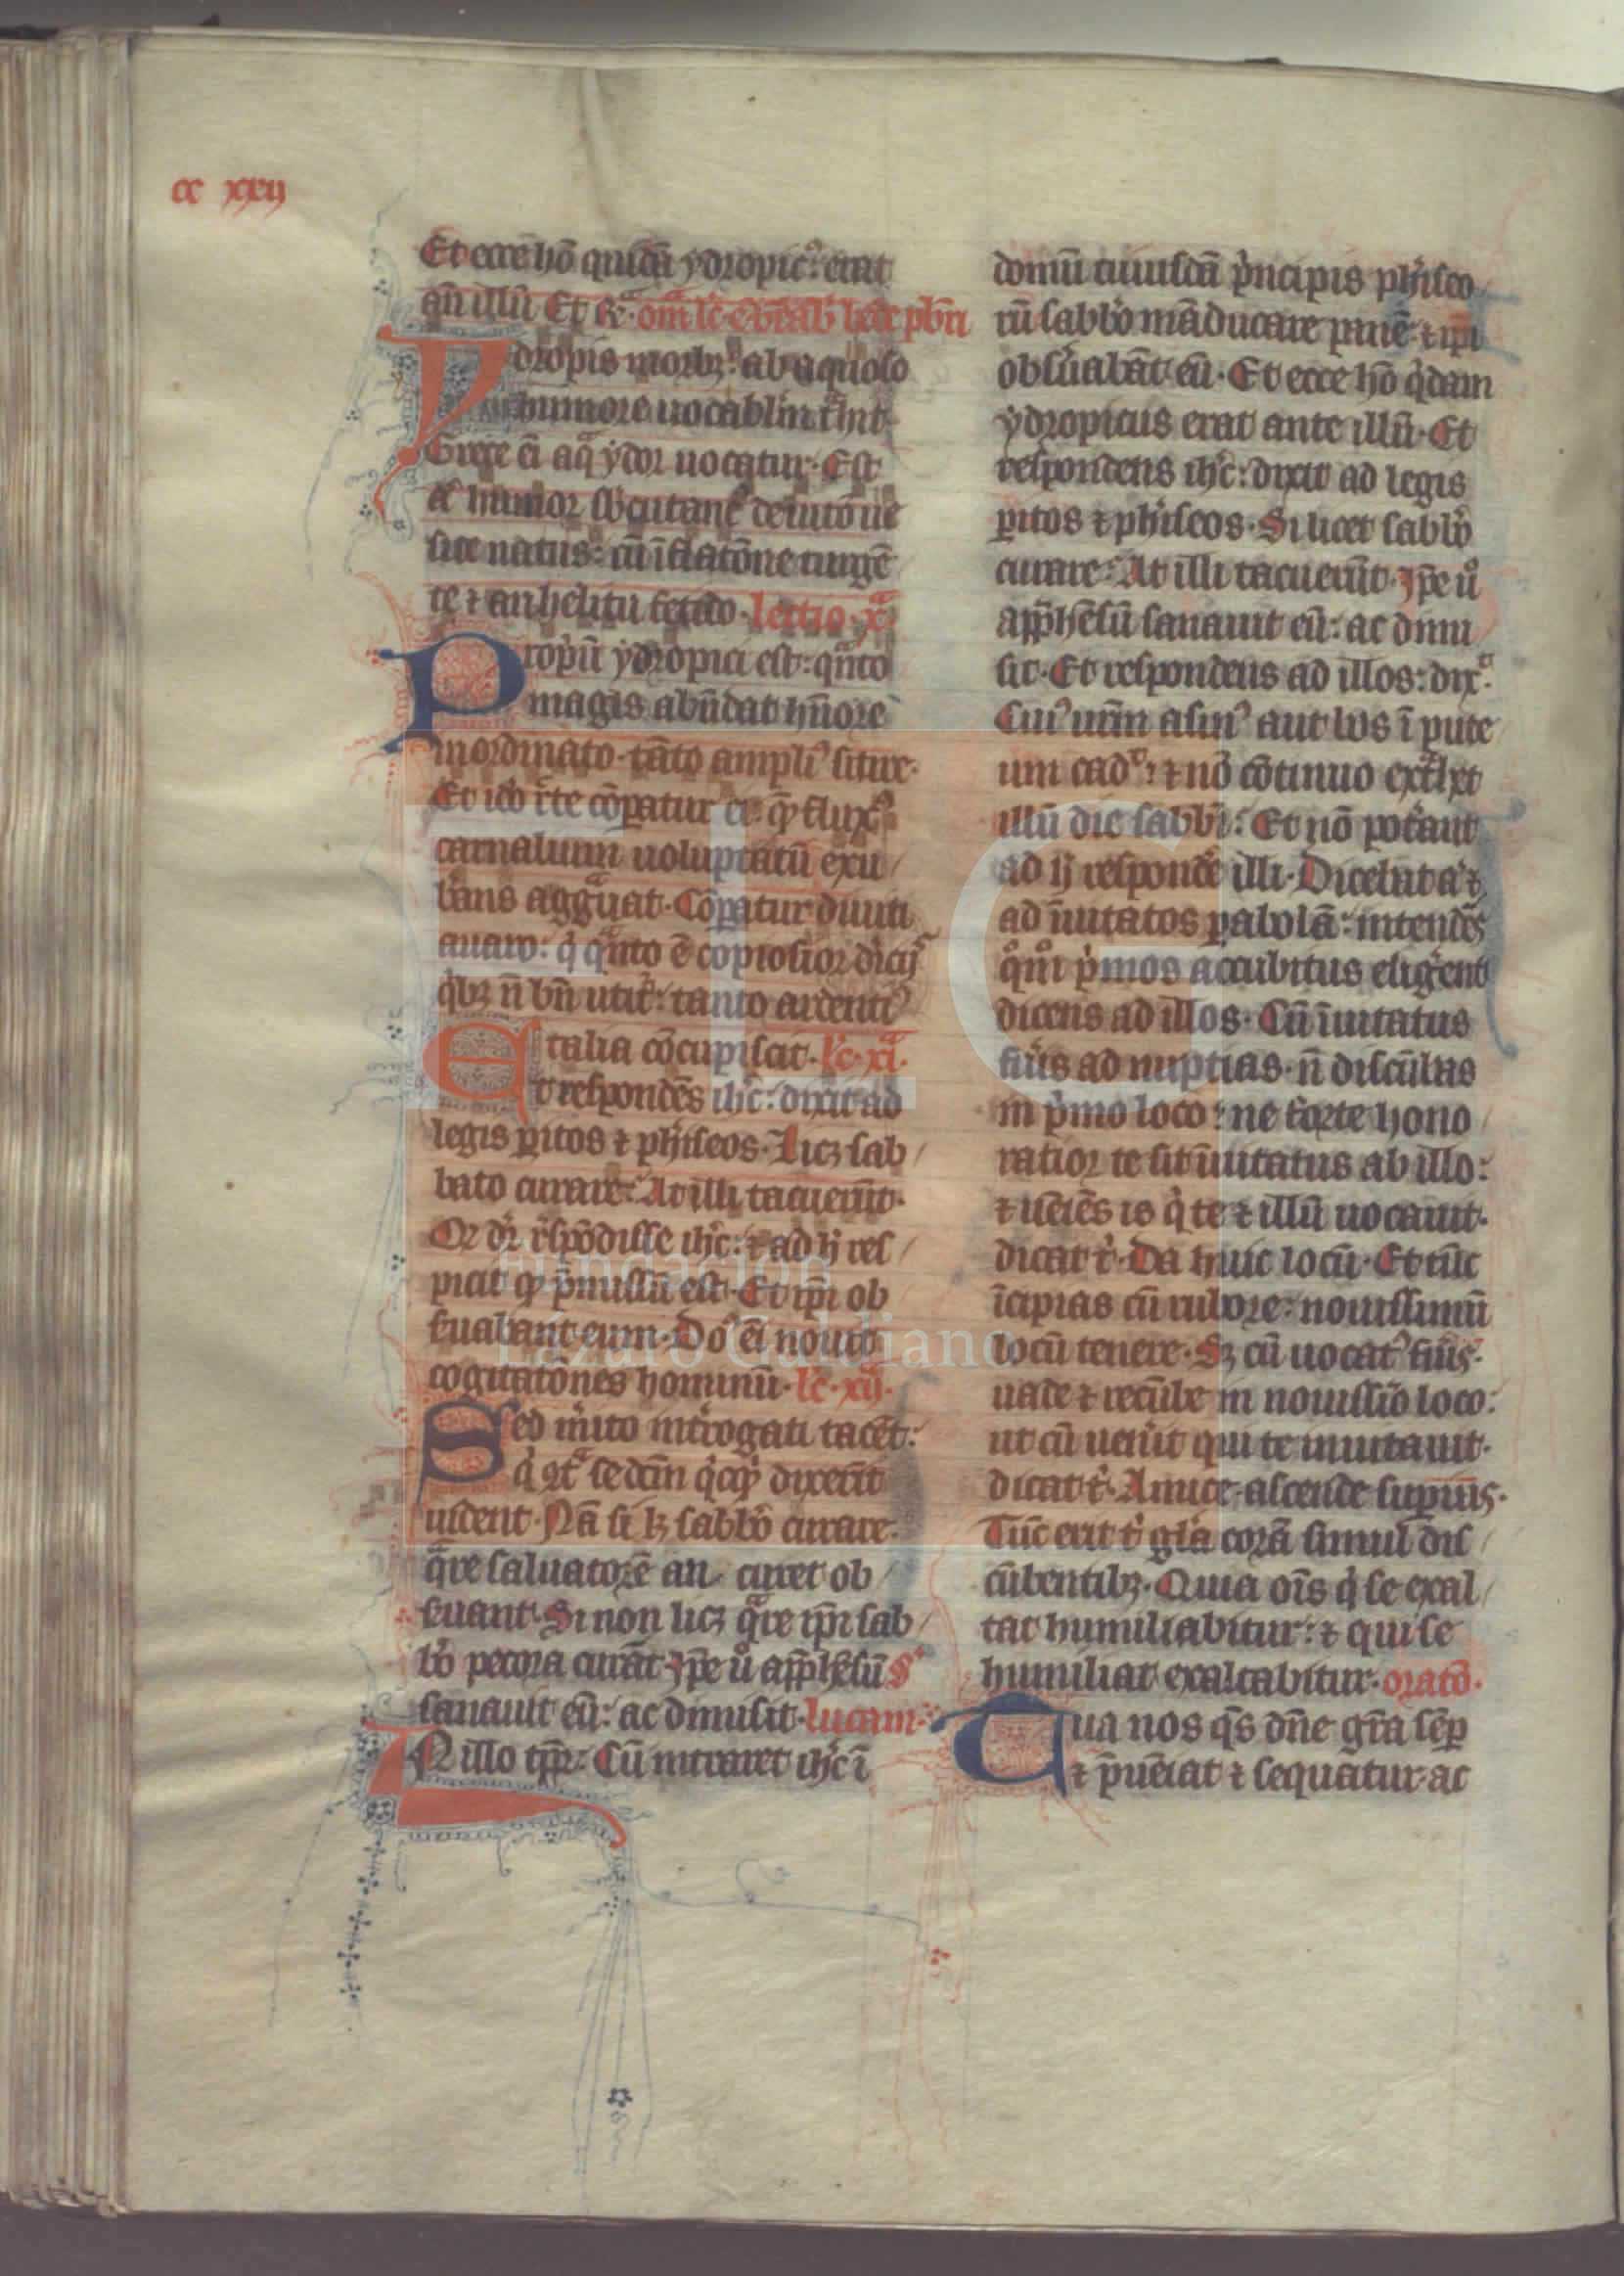 cc xxij
Et ecce hō quidā ydropicꝰ erat
an̄ illū Et rͤ. om̄ lc̄ e bt̄i
dropis morbꝰ ab aquoso
humore uocablm̄ tͣhit
Grece ei aqͣ ydor uocatur. Est
humor
sice natus: cū īflatōne turgē
te ⁊ anhelitu fetido. lectio. xͣ
Propͥū ydropici est: qͣnto
magis abūdat hūore
inordinato. tāto ampliꝰ sitire.
Et iō rc̄te cōpatur ei
carnalium uoluptatū exu/
bͥans aggͣuat. Cōpatur diuiti
auaro: qͥ qͣnto ē copiosior diuicijs
qͥbꝫ n̄ bn̄ utitͬ: tanto ardentiꝰ
talia cōcupiscit. lc̄. xiͣ.
Et respondēs ihc̄: dixit ad
legis ꝑitos ⁊ phͣiseos. Licꝫ sab/
bato curare: At illi tacuerūt.
Qꝫ dr̄ rn̄spōdisse ihc̄: ⁊ ad hͥ res/
picit qͥ p̄missū est. Et ip̄i ob
seruabant eum. Dōs ei nouit
cogitatōnes hominū. lc̄. xij.
Sed mͥito intͥrogati tacēt:
qͥ ꝯtͣ se dcm̄ qͥcqͥd dixerīt
uident. Nā si lꝫ sabbō curare.
qͣre saluatorē an curet ob/
seruant. Si non licꝫ qͣre ip̄i sab/
bō pecora curāt. Ip̄e u̇ app̄hēsū s̄
sanauit eū: ac dimisit. lucam.
IN illo tp̄r. Cū intraret ihc̄ ī
domū cuiusdā pͥncipis phͣiseo
rū sabbō māducare panē. ⁊ ip̄i
obsͥuabāt eū. Et ecce hō qͥdam
ydropicus erat ante illū. Et
respondens ihc̄: dixit ad legis
ꝑitos ⁊ phͣiseos. Si licet sabbō
curare: At illi tacuerūt. Ip̄e u̇
app̄hēsū sanauit eū: ac dimi
sit. Et respondens ad illos: dix̄.
Cuiꝰ ur̄m asinꝰ aut bos ī pute
um cadꝫ: ⁊ nō cōtinuo extͣhet
illū die sabbͥ: Et nō potͣant
ad hͥ respondē illi. Dicebat aͥ ⁊
ad īuitatos ꝑabolā: intendēs
qͦm̄ pͥmos accubitus eligͥent
dicens ad illos. Cū īuitatus
fuͥis ad nuptias. n̄ discūbas
in pͥmo loco: ne forte hono/
ratior te sit īuitatus ab illo:
⁊ ueīēs is qͥ te ⁊ illū uocauit.
dicat tͥ. Da huic locū. Et tūc
īcipias cū rubore: nouissimū
locū tenere. Sꝫ cū uocatꝰ fuͥis.
uade ⁊ recūbe in nouissiō loco:
ut cū uenͥit qui te inuitauit.
dicat tͥ. Amice ascende supͥius.
Tūc erit tͥ glͥa corā simul dis/
cūbentibꝫ. Quia oīs qͥ se exal/
tat humiliabitur: ⁊ qui se
humiliat exaltabitur. oratō.
Tua nos qs̄ dn̄e gr̄a sēꝑ
⁊ p̄ueīat ⁊ sequatur. ac
FLG
Fundación
Lázaro Galdiano